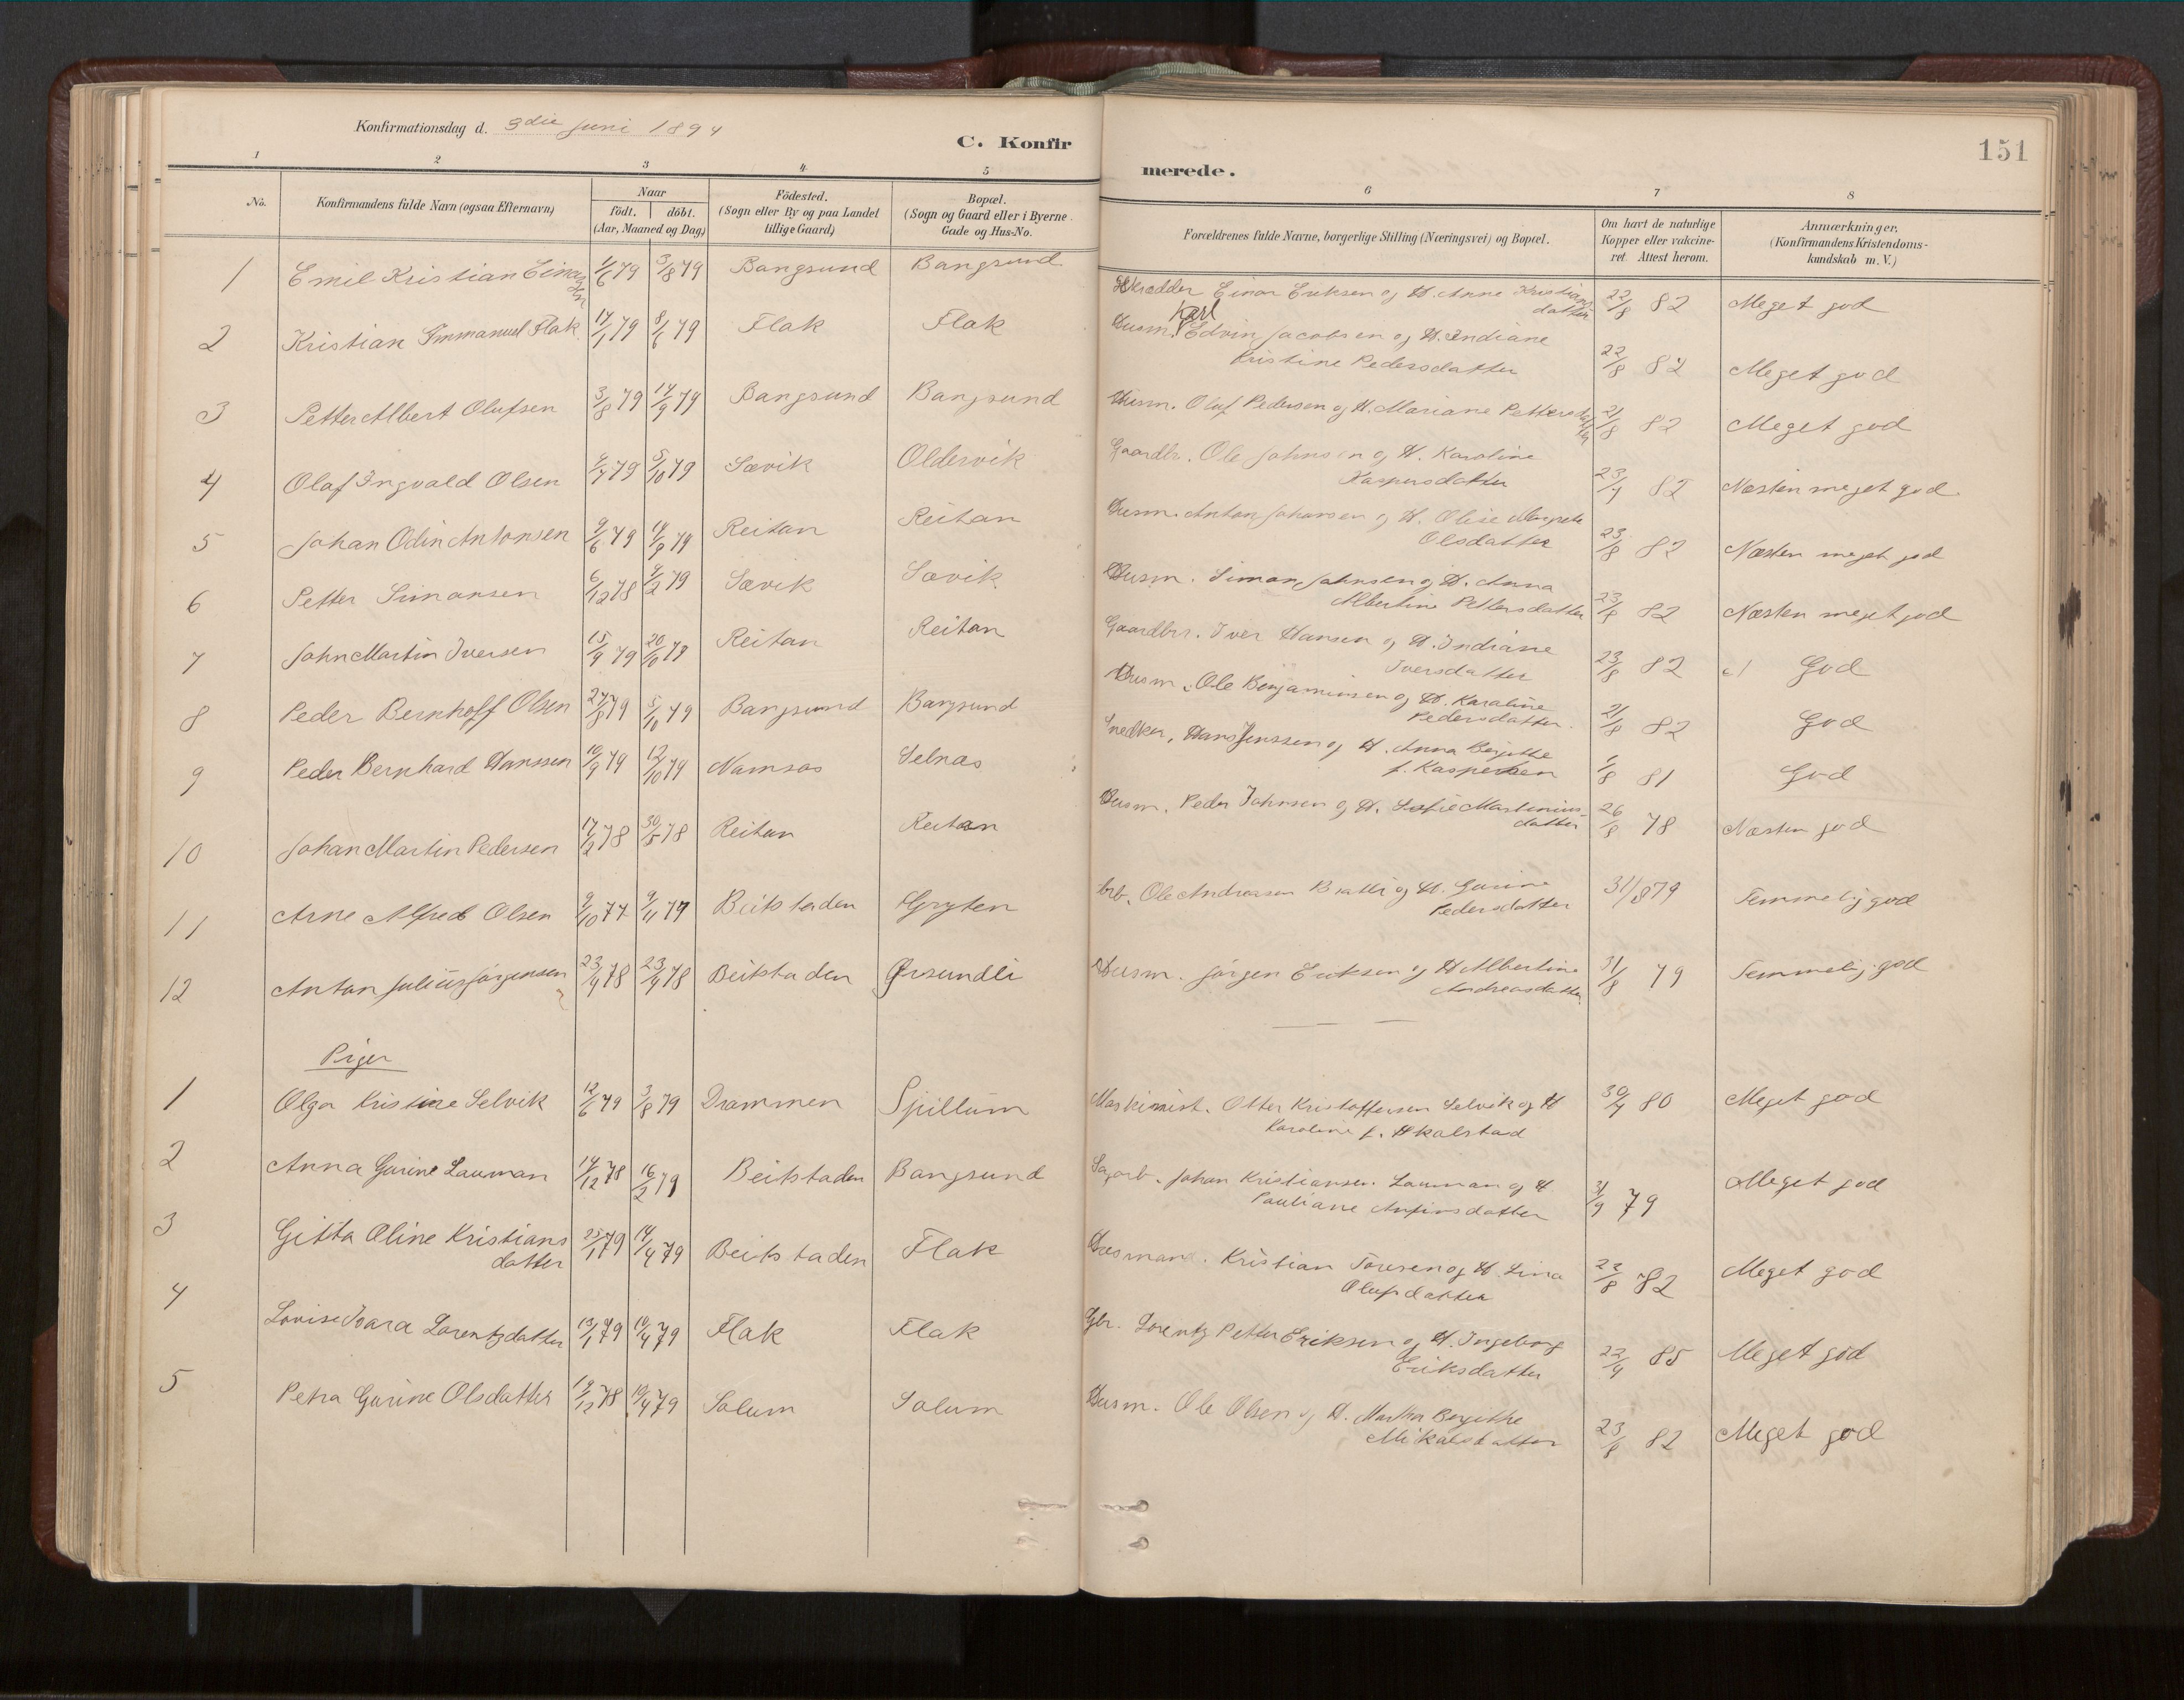 Konfirmationsdag d. 3die Juni 1894
C. Konfirmerede.
151
1 2 3 4 5 6 7 8
No. Konfirmandens fulde Navn (ogsaa Efternavn) Naar födt. döbt. (Aar, Maaned og Dag) Födested. (Sogn eller By og paa Landet tillige Gaard) Bopæl. (Sogn og Gaard eller i Byerne Gade og Hus-No. Forældrenes fulde Navne, borgerlige Stilling (Næringsvei) og Bopæl. Om havt de naturlige Kopper eller vakcineret. Attest herom. Anmærkninger. (Konfirmandens Kristendomskundskab m. V.)
1 Emil Kristian Einarsen 1/6 79 3/8 79 Bangsund Bangsund Skrædder Einar Eriksen og H. Anne Kristiansdatter 22/8 82 Meget god
2 Kristian Immanuel Flak 17/1 79 8/6 79 Flak Flak Husm. Karl Edvin Jacobsen og H. Indiane
Kristine Pedersdatter 22/8 82 Meget god
3 Petter Albert Olufsen 3/8 79 14/9 79 Bangsund Bangsund Husm. Oluf Pedersen og H. Mariane Pettersdatter 21/8 82 Meget god
4 Olaf Ingvald Olsen 79 5/10 79 Sævik Oldervik Gaardbr. Ole Johnsen og H. Karoline
Kaspersdatter 82 Næsten meget god
5 Johan Odin Antonsen 9/6 79 14/9 79 Reitan Reitan Husm. Anton Johansen og H. Olise Margrete
Olsdatter 23/8 82 Næsten meget god
6 Petter Simonsen 6/12 78 9/2 79 Sævik Sævik Husm. Simon Johnsen og H. Anna
Albertine Pettersdatter 82 Næsten meget god
7 John Martin Iversen 15/9 79 20/10 79 Reitan Reitan Gaardbr. Iver Hansen og H. Indiane
Iversdatter 23/8 82 God
8 Peder Bernhoff Olsen 27/8 79 5/10 79 Bangsund Bangsund Husm. Ole Benjaminsen og H. Karoline
Pedersdatter. 21/8 82 God
9 Peder Bernhard Hanssen 10/9 79 12/10 79 Namsos Selnæs Snedker, Hans Jenssen og H. Anna Bergitte
f. Kaspersen 1/8 81 God
10 Johan Martin Pedersen 17/2 78 30/5 78 Reitan Reitan Husm. Peder Johnsen og H. Sofie Martiniusdatter 26/8 78 Næsten god
11 Arne Alfred Olsen 9/10 77 9/11 79 Beitstaden Gryten Arb. Ole Andreasen Bratli og H. Gurine
Pedersdatter 31/8 79 Temmelig god
12 Anton Julius Jörgensen 23/4 78 23/9 78 Beitstaden Örsundli Husm. Jörgen Eriksen og H Albertine
Andreasdatter 31/8 79 Temmelig god
Piger
1 Olga Kristine Selvik 12/6 79 3/8 79 Drammen Spillum Maskinist. Otter Kristoffersen Selvik og H
Karoline f. Skalstad 80 Meget god
2 Anna Gurine Lauman 14/12 78 16/2 79 Beitstaden Bangsund Sagarb. Johan Kristiansen Lauman og H
Pauliane Anfinsdatter 79 Meget god
3 Gitta Oline Kristiansdatter 25/1 79 14/4 79 Beitstaden Flak Husmand. Kristian Toresen og H Lina
Olufsdatter 22/8 82 Meget god
4 Lovise Ivara Lorentzdatter 13/1 79 10/4 79 Flak Flak Gbr. Lorentz Petter Eriksen og H. Ingeborg
Eriksdatter 22/9 85 Meget god
5 Petra Gurine Olsdatter 19/12 78 10/4 79 Solum Solum Husm. Ole Olsen og H. Martha Bergithe
Mikalsdatter 23/8 82 Meget god